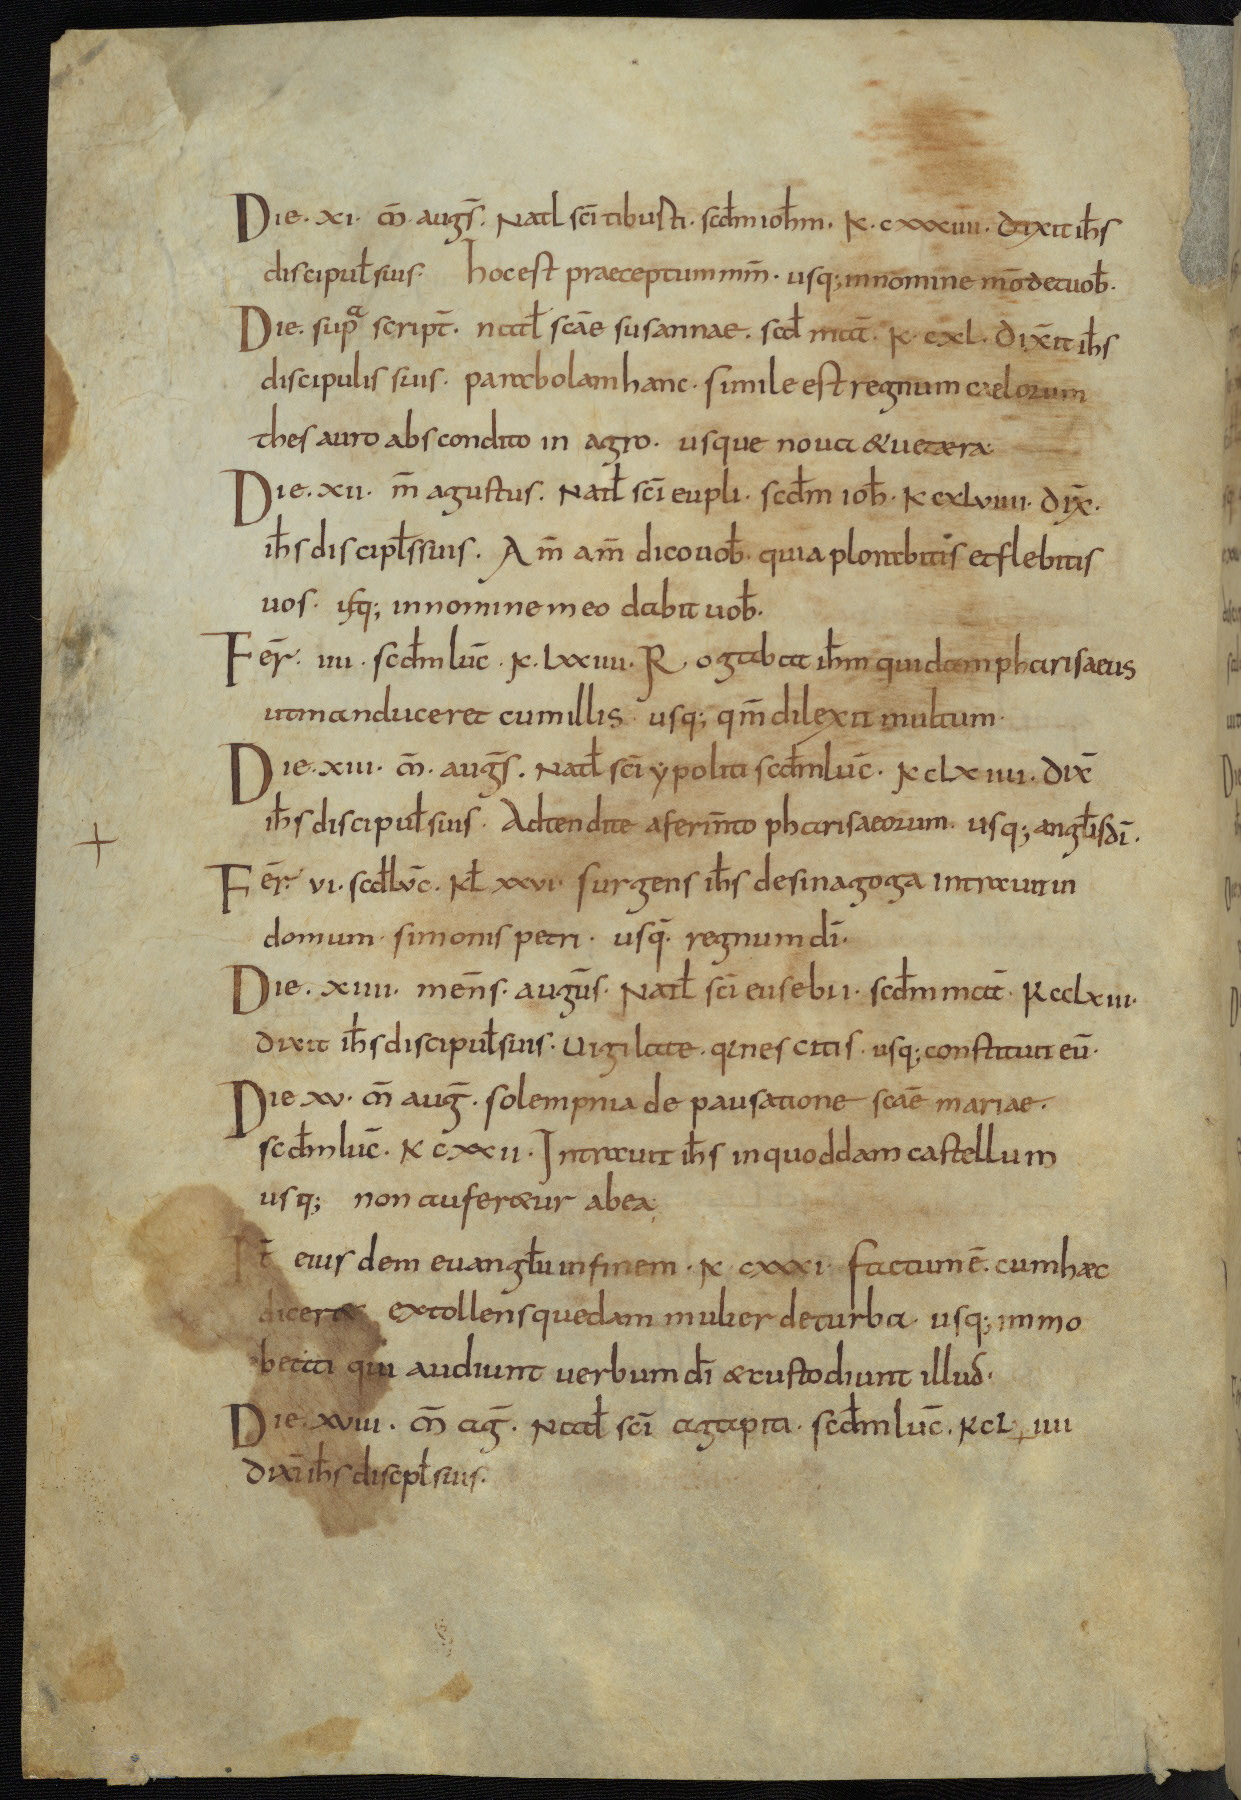 Die · xi · m̄ · augs̄ · Natl sc̄i tibusti · scdm̄ ioħm · K · cxxxiiii · dixit ih̄s
discipuł suis · hoc est praeceptum mm̄ · usq; in nomine mōdetuob̄ ·
Die · supᵃ script̄ · natał scāe susannae · scd̄ mat̄ · K · cxl · dix̄it ih̄s
discipulis suis · parabolam hanc · simile est regnum caelorum
thesauro abscondito in agro · usque noua &uetera
Die · xii · m̄ agustus · Natał sc̄i eupli · scdm̄ ioh̄ · K cxlviiii · dix̄ ·
ih̄s discipłs suis · Am̄ am̄ dico uob̄ · quia plorabitis et flebitis
uos · usq; in nomine meo dabit uob̄ ·
Fer̄ · iiii · scdm̄ luc̄ · K · lxxiiii · Rogabat ih̄m quidam pharisaeus
ut manduceret cum illis · usq; qm̄ dilexit multum ·
Die · xiii · m̄ · augs̄ · Natał sc̄i ypoliti scdm̄ luc̄ · K clxiiii · dix̄
ih̄s discipuł suis · Adtendite a ferm̄to pharisaeorum · usq; angłis dī ·
Fer̄ · vi · scd̄ luc̄ · Kł xxvi · surgens ih̄s de sinagoga intrauit in
domum · simonis petri · usq̄ · regnum dī ·
Die · xiiii · mens̄ · augus̄ · Natał sc̄i eusebii · scdm̄ mat̄ · K cclxiii ·
dixit ih̄s discipuł suis · Uigilate · q nescitis · usq; constituit eū ·
Die xv · m̄ auḡ · solempnia de pausatione scāe mariae ·
scdm̄ luc̄ · K cxxii · Intrauit ih̄s in quoddam castellum
usq; non auferetur ab ea
It̄ eiusdem euangłii in finem · K cxxxi · factum ē · cum haec
diceret extollens quedam mulier de turba · usq; immo
beati qui audiunt uerbum dī &custodiunt illud ·
Die · xviii · m̄ aḡ · Natał sc̄i agapiti · scdm̄ luc̄ · K cl iiii
dixit ih̄s discipł suis ·